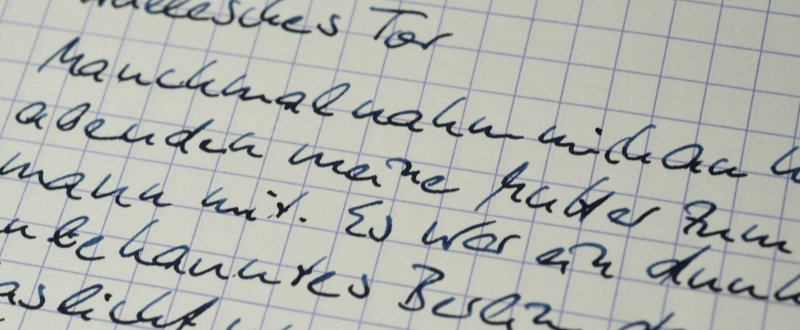 Hallesches Tor
Manchmal nahm mich an
abenden meine Mutter zum
mann mit. Es war ein dunk
unbekanntes Berlin d
aslicht